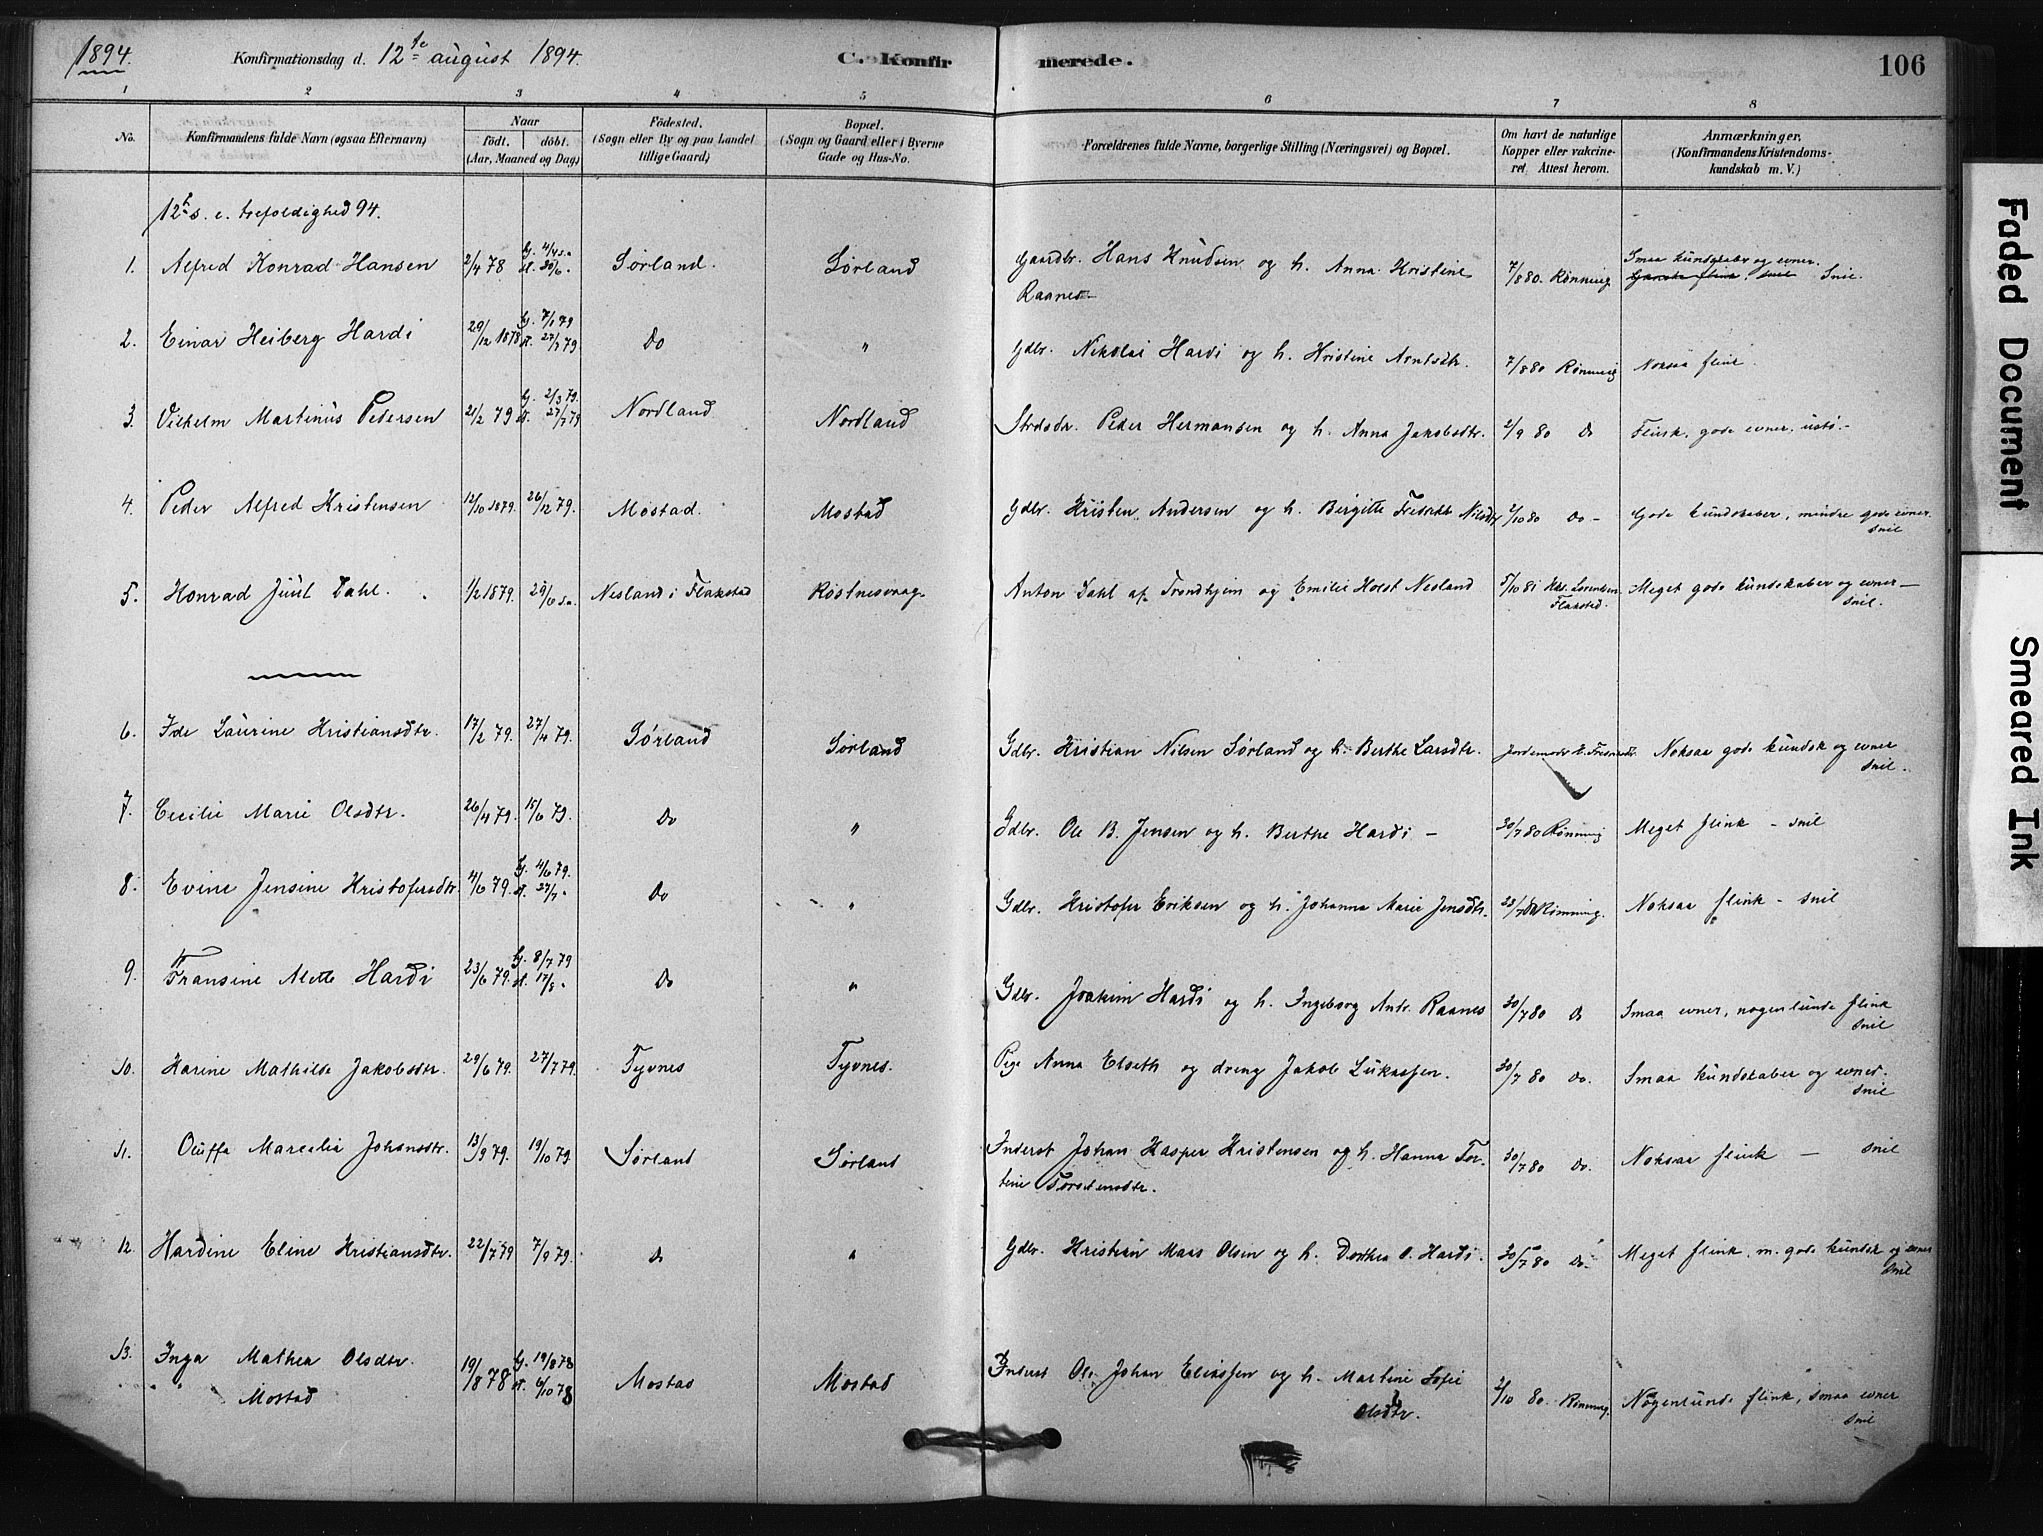 1894.
Konfirmationsdag d. 12te august 1894.
C. Konfirmerede.
106
1 2 3 4 5 6 7 8
No.
Konfirmandens fulde Navn (ogsaa Efternavn)
Naar
födt. döbt.
(Aar, Maaned og Dag)
Födested.
(Sogn eller By og paa Landet
tillige Gaard)
Bopæl.
(Sogn og Gaard eller i Byerne
Gade og Hus-No.
Forældrenes fulde Navne, borgerlige Stilling (Næringsvei) og Bopæl.
Om havt de naturlige
Kopper eller vakcine-
ret. Attest herom.
Anmærkninger.
(Konfirmandens Kristendoms-
kundskab m. V.)
12t s. e. trefoldighed 94.
1. Alfred Konrad Hansen 2/4 78 Sørland. Sørland Gaardbr. Hans Knudsen og h. Anna Kristine 7/8 80. Rønning Smaa kundskaber og evner.
Raanes
Ganske flink snil Snil.
2. Einar Heiberg Hardi 29/12 1878 hj. 7/1 79 st. 27/7 79 Do " Gdbr. Nikolai Hardi og h. Kristine Arntsdtr. 7/8 80 Rønning Noksaa flink.
3. Vilhelm Martinus Pedersen 21/2 79 hj. 2/3 79. st. 27/7 79 Nordland Nordland Peder Hermansen og h. Anna Jakobsdtr. 2/9 80 Do Flink, gode evner,
4. Peder Alfred Kristensen 12/10 1879. 26/12 79. Mostad. Mostad Gdbr. Kristen Andersen og h. Birgitte Fredrikke Nilsdtr 2/10 80 Do - Gode kundskaber, mindre gode evner.
snil
5. Konrad Juul Dahl. 1/2 1879. 29/6 s.a. Nesland i Flakstad Røstnesvaag. Anton Dahl af Trondhjem og Emilie Holst Nesland 5/10 81 Lorentsen Meget gode kundskaber og evner —
Flaksted. snil.
6. Ida Laurine Kristiansdtr. 17/2 79. 27/4 79. Sørland Sørland Gdbr. Kristian Nilsen Sørland og h. Berthe Larsdtr. Noksaa gode kundsk og evner
snil.
7. Cecilie Marie Olsdtr. 26/4 79. 15/6 79. Do " Gdbr. Ole B. Jensen og h. Berthe Hardi - 30/7 80 Rønning Meget flink - snil
8. Evine Jensine Kristofersdtr. 4/6 79. hj. 4/6 79. st. 27/7 " Do " Gdbr. Kristofer Eriksen og h. Johanna Marie Jensdtr. Rønning. Noksaa flink - snil
9. Fransine Alette Hardi 23/6 79. hj. 8/7 79 st. 17/8 " Do " Gdbr. Joakim Hardi og h. Ingeborg Antr. Raanes 30/7 80 Do Smaa evner, nogenlunde flink
snil
10. Karine Mathilde Jakobsdtr. 29/6 79. 27/7 79. Tyvnes Tyvnes. Pige Anna Elseth og dreng Jakob Lukassen. 30/7 80 Do. Smaa kundskaber og evner.
snil
11. Oluffa Marselia Johansdtr. 13/9 79. 19/10 79. Sørland Sørland Inderst Johan Kasper Kristensen og h. Hanna Tor- 30/7 80 Do. Noksaa flink — snil
tine Torstensdtr.
12. Hardine Eline Kristiansdtr. 22/7 79 7/9 79. Do " Gdbr. Kristian Mars Olsen og h. Dorthea O. Hardi. 30/7 80 Do. Meget flink, m. gode kundsk og evner
snil
13. Inga Mathea Olsdtr. 19/8 78 hj. 19/8 78 st. 6/10 78 Mostad Mostad Inderst Ole Johan Eliassen og h. Martine Sofie 2/10 80. Rønning. Nogenlunde flink, smaa evner
" " Mostad Olsdtr. snil
Faded Document
Smeared Ink